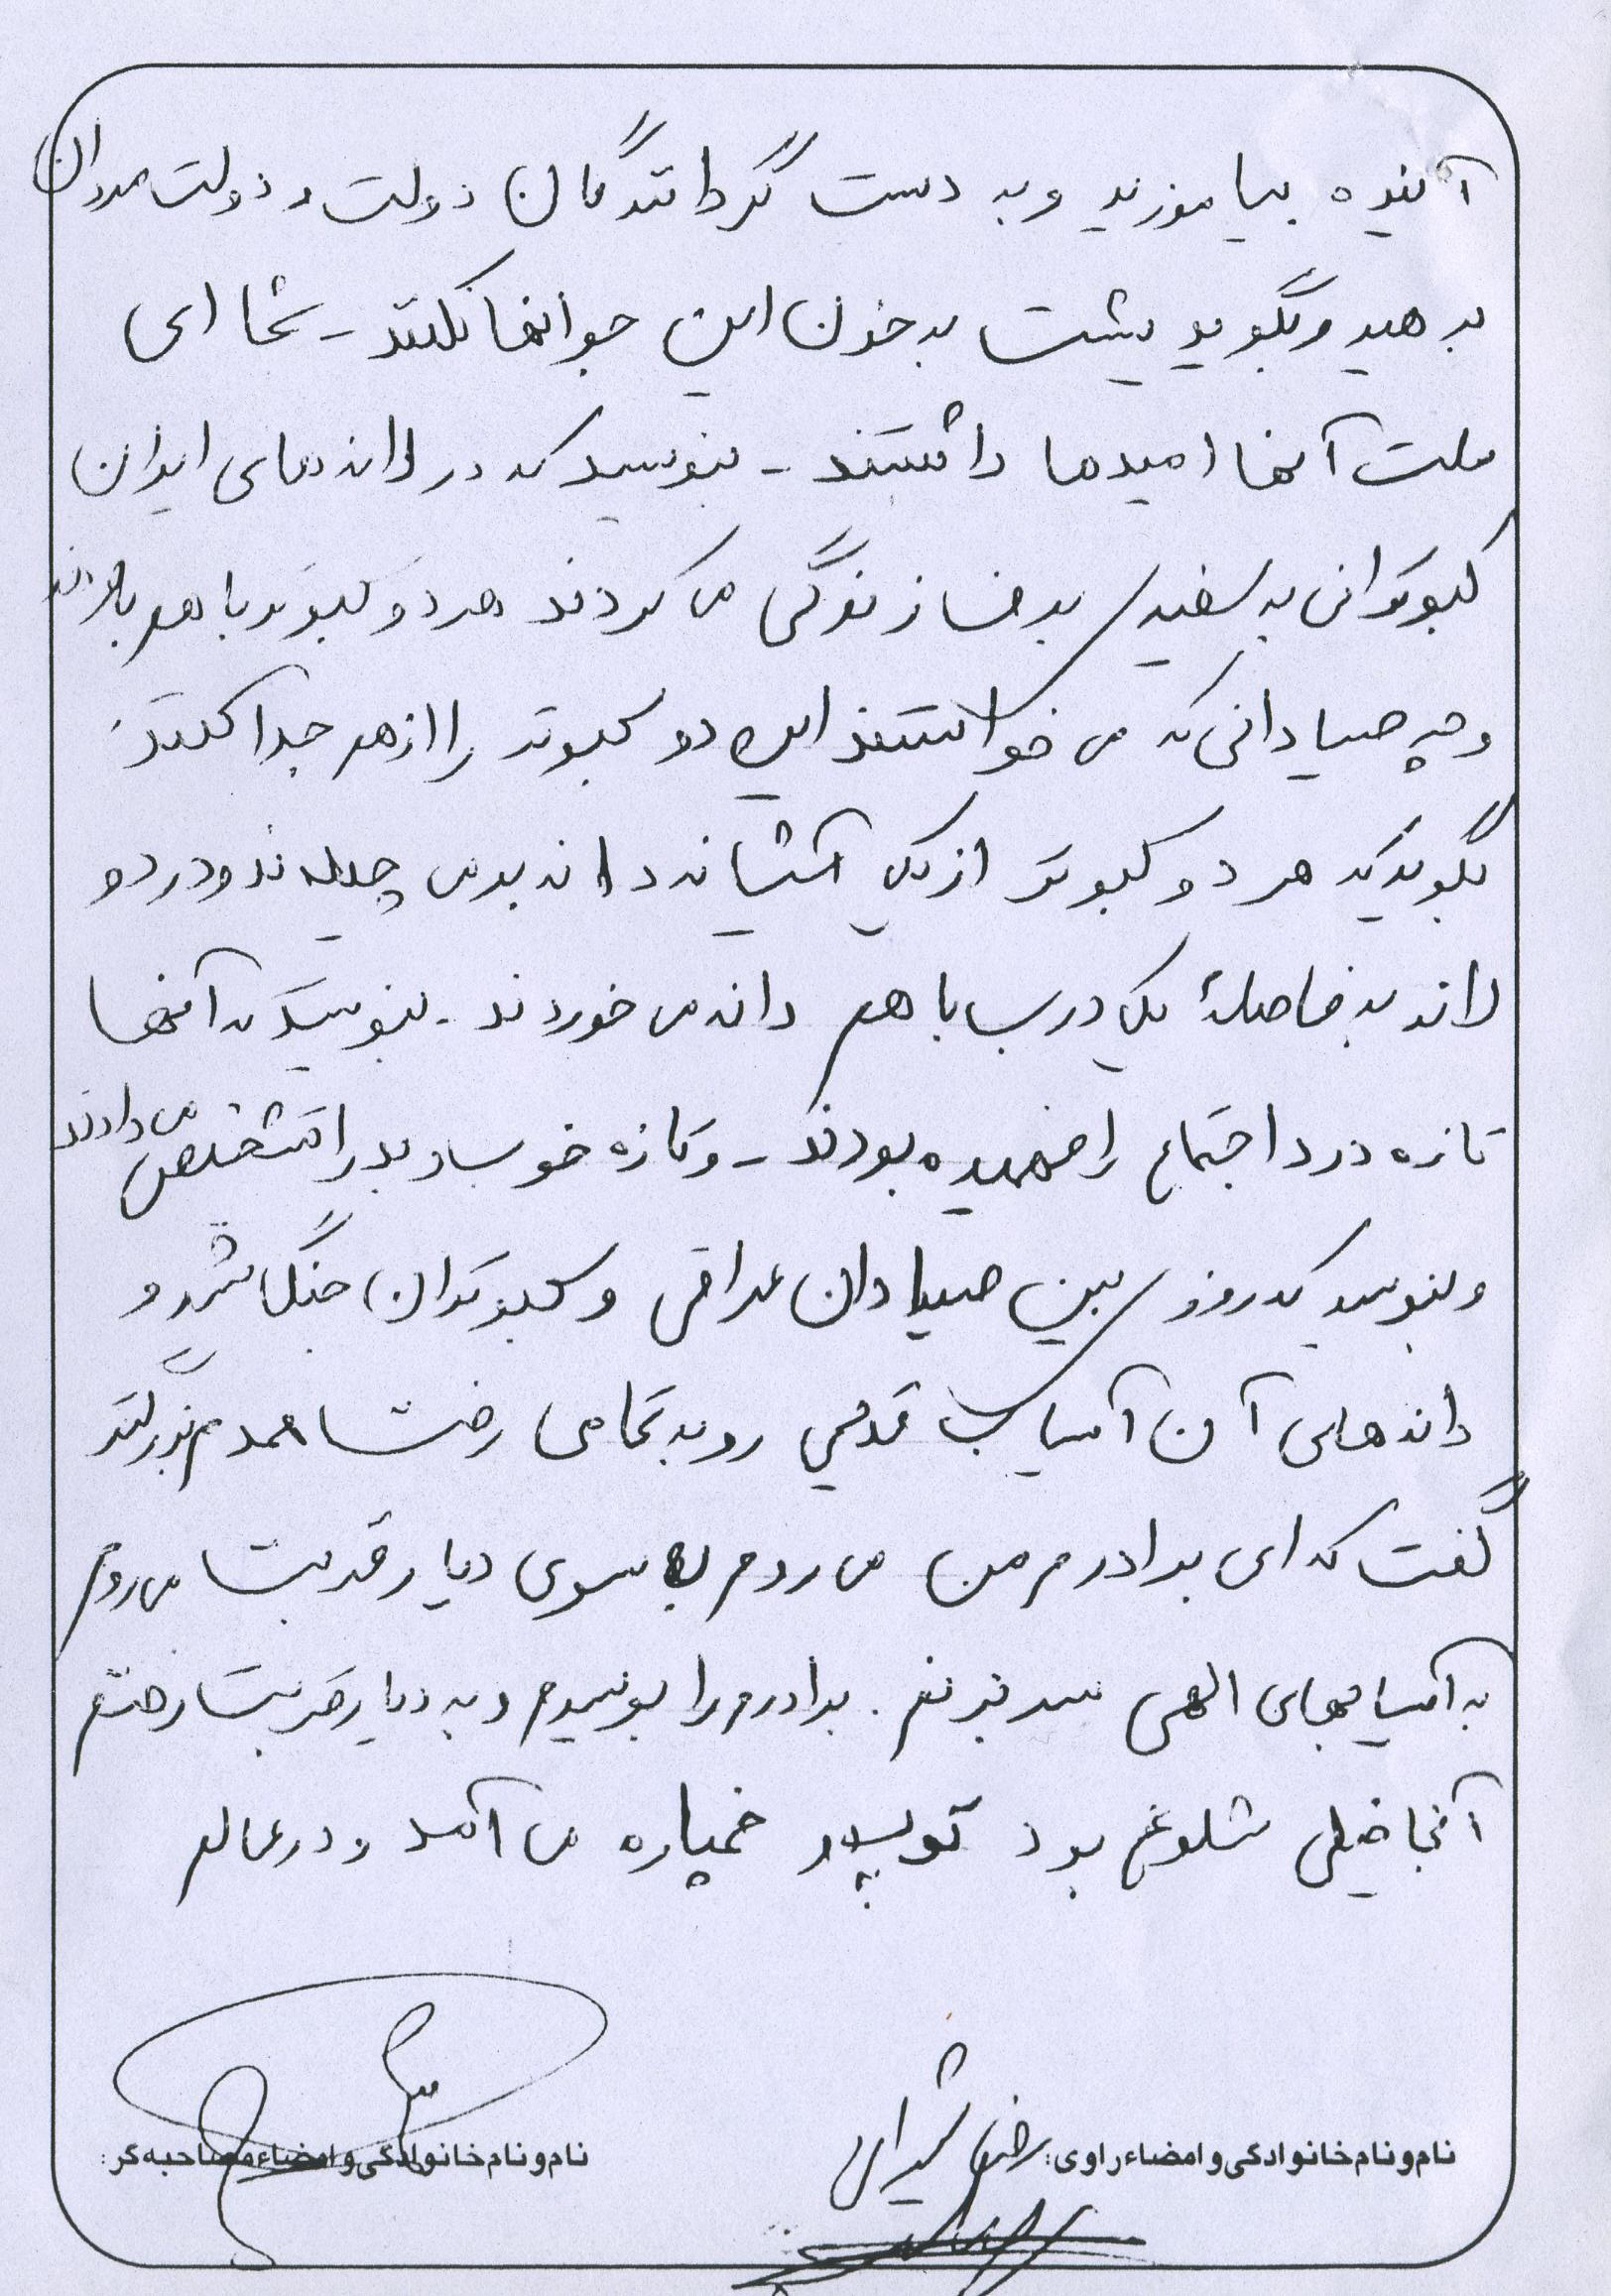 آینده بیاموزید و به دست گردانندگان دولت و دولت مردان
بدهید و بگوید پشت به خون این جوانها نکنند - شما ای
ملت آنها امیدها داشتند - بنویسید که در لانه های ایران
کبوترانی به سفیدی برف زندگی می کردند هر دو کبوتر با هم بودند
و چه صیادانی که می خواستند این دو کبوتر را از هم جدا کنند
بگویید که هر دو کبوتر از یک آشیانه دانه بر می چیدند و در دو
لانه به فاصلهٔ یک درب با هم دانه می خوردند - بنویسید که آنها
تازه درد اجتماع را فهمیده بودند - و تازه خوب و بد را تشخیص می دادند
و بنویسید که روزی بین صیادان عراقی و کبوتران جنگ شد و
دانه های آن آسیاب قدیمی رو به تمامی رفت احمدم
گفت که ای برادرم من می روم به سوی دیار قربت می روم
به آسیابهای الهی سر بزنم . برادرم را بوسیدم و به دیار قربت رفتم
آنجا خیلی شلوغ بود توپ و خمپاره می آمد و در عالم
نام و نام خانوادگی و امضاء راوی: رضا شیرالی
نام و نام خانوادگی و امضاء مصاحبه گر: